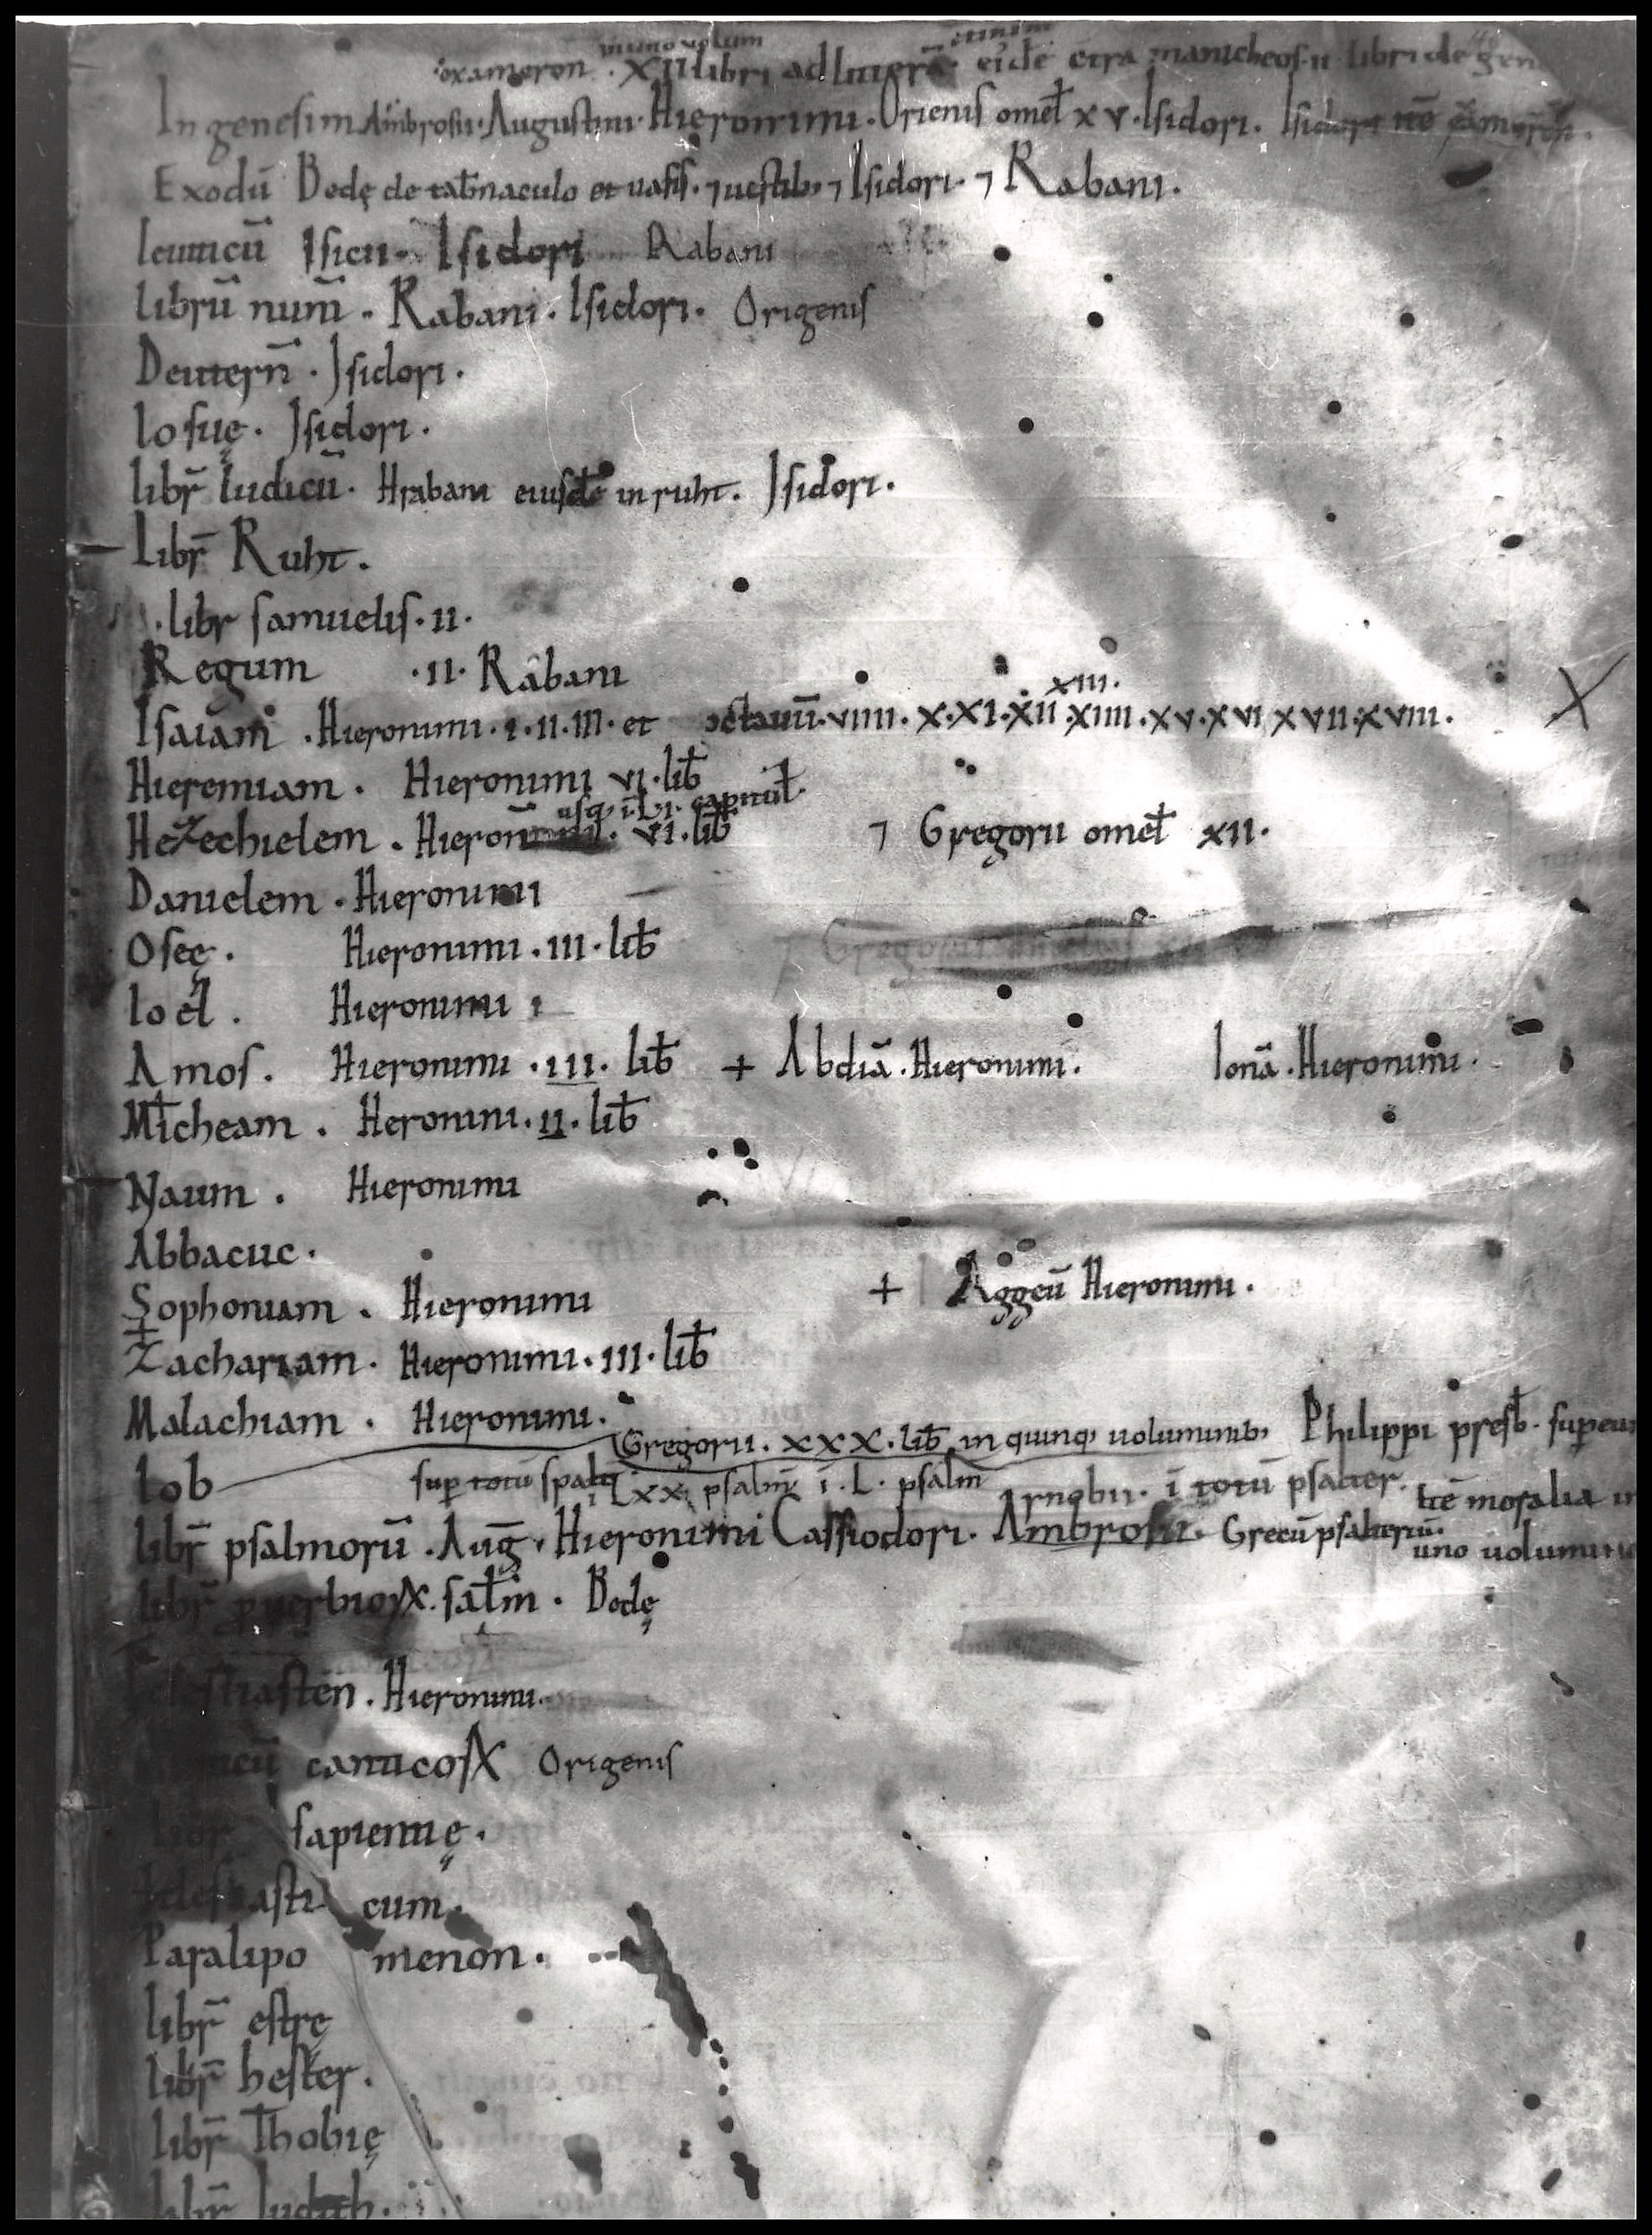 in uno uolum
exameron . XII libri ad litterā . eiđe ctra manicheos . ii . libri de gen
In genesim Ambrosii . Augustini . Hieronimi . Orienis omeł xv . Isidori . Isidori
Exodū Bedę de tab̄naculo et uasis . ⁊ uestib; ⁊ Isidori . ⁊ Rabani .
leuiticū Isicii . Isidori Rabani
librū num̄ . Rabani . Isidori . Origenis
Deutern̄ . Isidori .
Iosuę . Isidori .
libr̄ Iudicū . Hrabani eiusđe in ruht . Isidori .
Libr̄ Ruht .
. libr samuelis . ii .
Regum . ii . Rabani
xiii .
Isaiam . Hieronimi . i . ii . iii . et octauū . viiii . x . xi . xii . xiiii . xv . xvi xvii . xviii . X
Hieremiam . Hieronimi vi . lib̄
usq; ī Li . capitul̄
Hezechielem . Hieronimi . vi . lib̄ ⁊ Gregorii omeł xii .
Danielem . Hieronimi
Osee . Hieronimi . iii . lib̄
Gregorii
Ioel . Hieronimi i
Amos . Hieronimi . iii . lib̄ + Abdiā . Hieronimi . Ionā . Hieronimi .
Micheam . Heronini . ii . lib̄
Naum . Hieronimi
Abbacuc .
Sophoniam . Hieronimi + Aggeū Hieronimi .
+
Zachariam . Hieronimi . iii . lib̄
Malachiam . Hieronimi .
Iob Gregorii . xxx . lib̄ in quinq; uoluminib; Philippi presb̄ . sup eun
sup totū spalt̄ Lxx psalm̄ ī . L . psalm̄ Arnobii . ī totū psalter . ħe moralia in
libr̄ psalmorū . Auḡ . Hieronimi Cassiodori . Ambrosii . Grecū psalteriū . uno uolumine
libr̄ puerbioꝝ . salm̄ . Bedę
stiasten . Hieronimi .
canticoꝝ Origenis
sapientię .
cum .
Paralipo menon .
libr̄ estrę
libr̄ hester .
libr̄ Thobię
libr̄ Iudith .